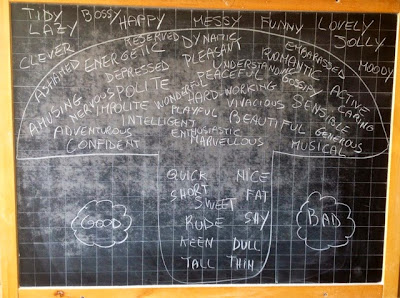 TIDY BOSSY HAPPY MESSY FUNNY LOVELY
LAZY JOLLY
CLEVER RESERVED DYNAMIC EMBARASSED MOODY
ASHAMED ENERGETIC PLEASANT ROMANTIC
DEPRESSED UNDERSTANDING
NERVOUS POLITE PEACEFUL GOSSIPY ACTIVE
AMUSING IMPOLITE WONDERFUL HARD-WORKING SENSIBLE CARING
PLAYFUL VIVACIOUS
ADVENTUROUS INTELLIGENT BEAUTIFUL GENEROUS
CONFIDENT ENTHUSIASTIC MUSICAL
MARVELLOUS
QUICK NICE
SHORT FAT
SWEET
GOOD RUDE SHY BAD
KEEN DULL
TALL THIN